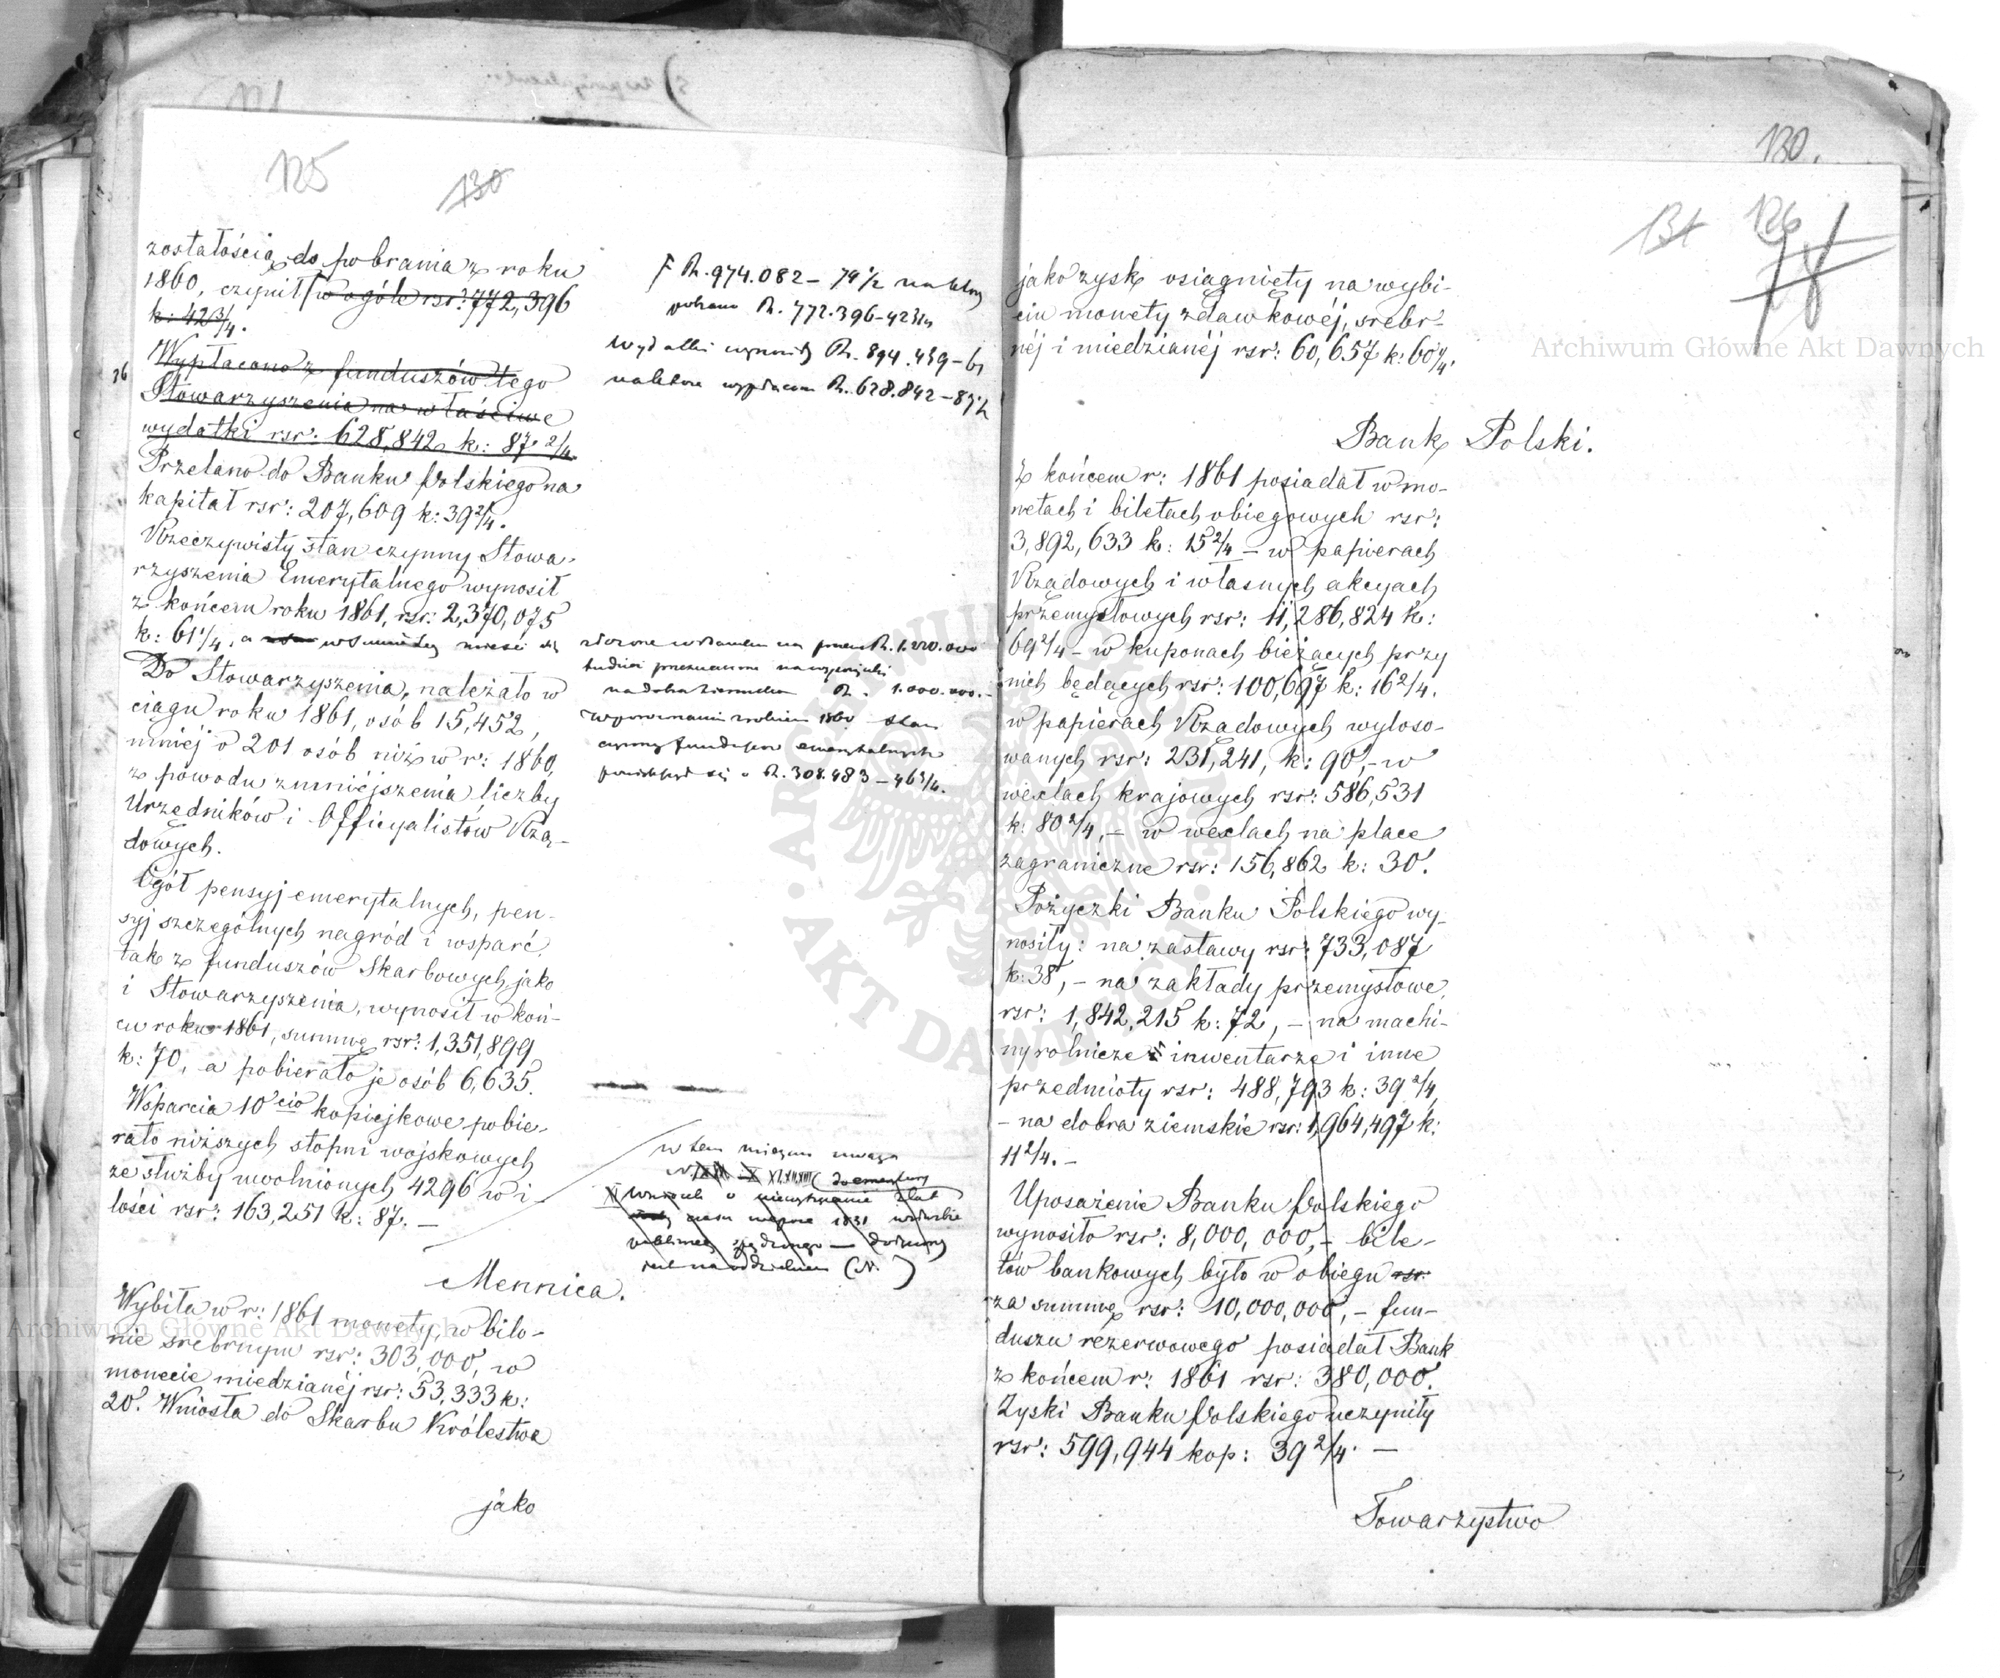 125
130
zostałością do pobrania z roku
1860, czynił w ogóle rsr: 772,396
k: 42 3/4.
Wypłacono z funduszów tego
Stowarzyszenia na właściwe
wydatki rsr: 628,842 k: 87 2/4.
Przelano do Banku Polskiego na
kapitał rsr: 207,609 k: 39 2/4.
Rzeczywisty stan czynny Stowa-
rzyszenia Emerytalnego wynosił
z końcem roku 1861, rsr: 2,370,075
k: 61 1/4, a w summie tej mieści się
Do Stowarzyszenia, należało w
ciągu roku 1861, osób 15,452,
mniej o 201 osób niż w r: 1860,
z powodu zmniejszenia liczby
Urzędników i Officyalistów Rzą-
dowych.
Ogół pensyj emerytalnych, pen-
syj szczególnych nagród i wsparć,
tak z funduszów Skarbowych, jako
i Stowarzyszenia, wynosił w koń-
cu roku 1861, summę rsr: 1,351,899
k: 70, a pobierało je osób 6,635.
Wsparcia 10cio kopiejkowe pobie-
rało niższych stopni wojskowych
ze służby uwolnionych 4296 w i-
lości rsr: 163,251 k: 87. –
Mennica.
Wybiła w r: 1861 monety, w bilo-
nie srebrnym rsr: 303,000, w
monecie miedzianéj rsr: 53,333 k:
20. Wniosła do Skarbu Królestwa
jako
F R. 974.082 – 79 1/2 na który
pobrano R. 772.396 – 42 3/4
Wydatki wynosiły R. 894.439 – 61
na które wypłacono R. 628.842 – 87 1/2
R. 1.220.000
R. 1.000.000. –
w porównaniu z rokiem 1860 stan
czynny funduszów emerytalnych
powiększył się o R. 308.483 – 46 3/4.
w tem miejscu uwaga
1831
130.
131
126
jako zysk osiągnięty na wybi-
ciu monety zdawkowéj, srebr-
néj i miedzianéj rsr: 60,657 k: 60 1/4.
Bank Polski.
Z końcem r: 1861 posiadał w mo-
netach i biletach obiegowych rsr:
3,892,633 k: 15 2/4 – w papierach
Rządowych i własnych akcyach
przemysłowych rsr: 11,286,824 k:
69 2/4 – w kuponach bieżących przy
nich będących rsr: 100,697 k: 16 2/4.
w papierach Rządowych wyloso-
wanych rsr: 231,241, k: 90, – w
wexlach krajowych rsr: 586,531
k: 80 2/4, – w wexlach na place
zagraniczne rsr: 156,862 k: 30.
Pożyczki Banku Polskiego wy-
nosiły: na zastawy rsr: 733,087
k: 38, – na zakłady przemysłowe,
rsr: 1,842,215 k: 72, – na machi-
ny rolnicze inwentarze i inne
przedmioty rsr: 488,793 k: 39 2/4,
– na dobra ziemskie rsr: 1,964,497 k:
11 2/4. –
Uposażenie Banku Polskiego
wynosiło rsr: 8,000,000, – bile-
tów bankowych było w obiegu rsr:
za summę rsr: 10,000,000, – fun-
duszu rezerwowego posiadał Bank
z końcem r: 1861 rsr: 380,000.
Zyski Banku Polskiego uczyniły
rsr: 599,944 kop: 39 2/4. –
Towarzystwo
Archiwum Główne Akt Dawnych
Archiwum Główne Akt Dawnych
ARCHIWUM GŁÓWNE AKT DAWNYCH